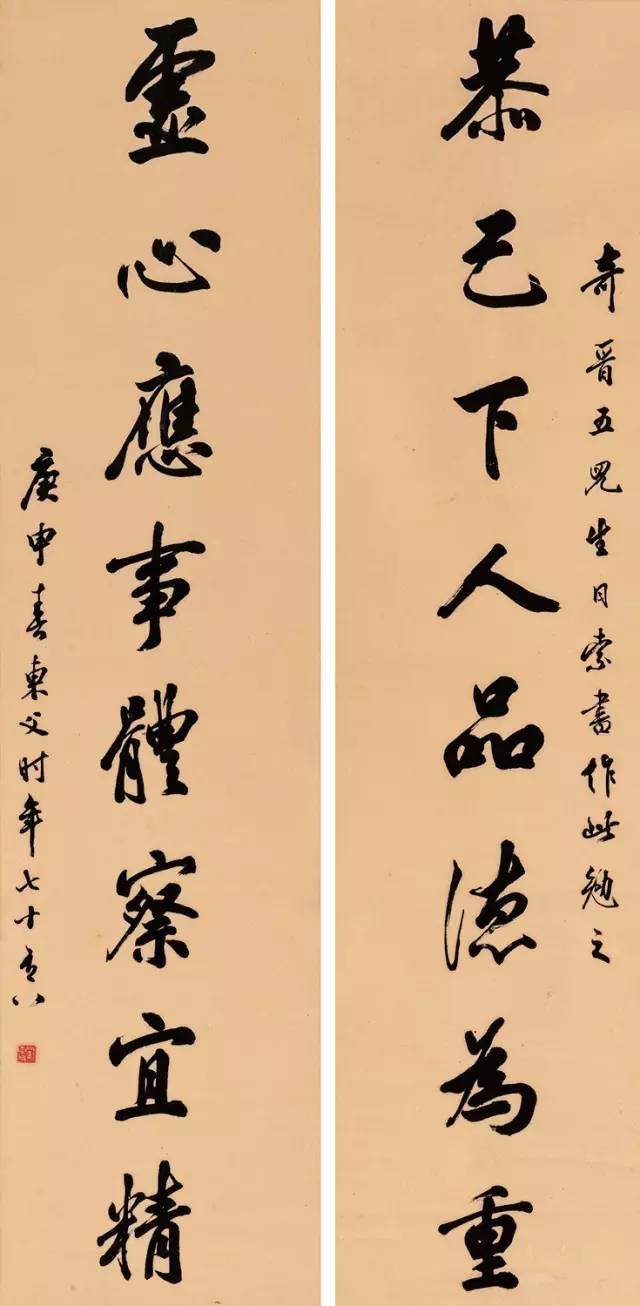 奇晋五兒生日索書作此勉之
恭己下人品德為重
靈心應事體察宜精
庚申春東父时年七十有八